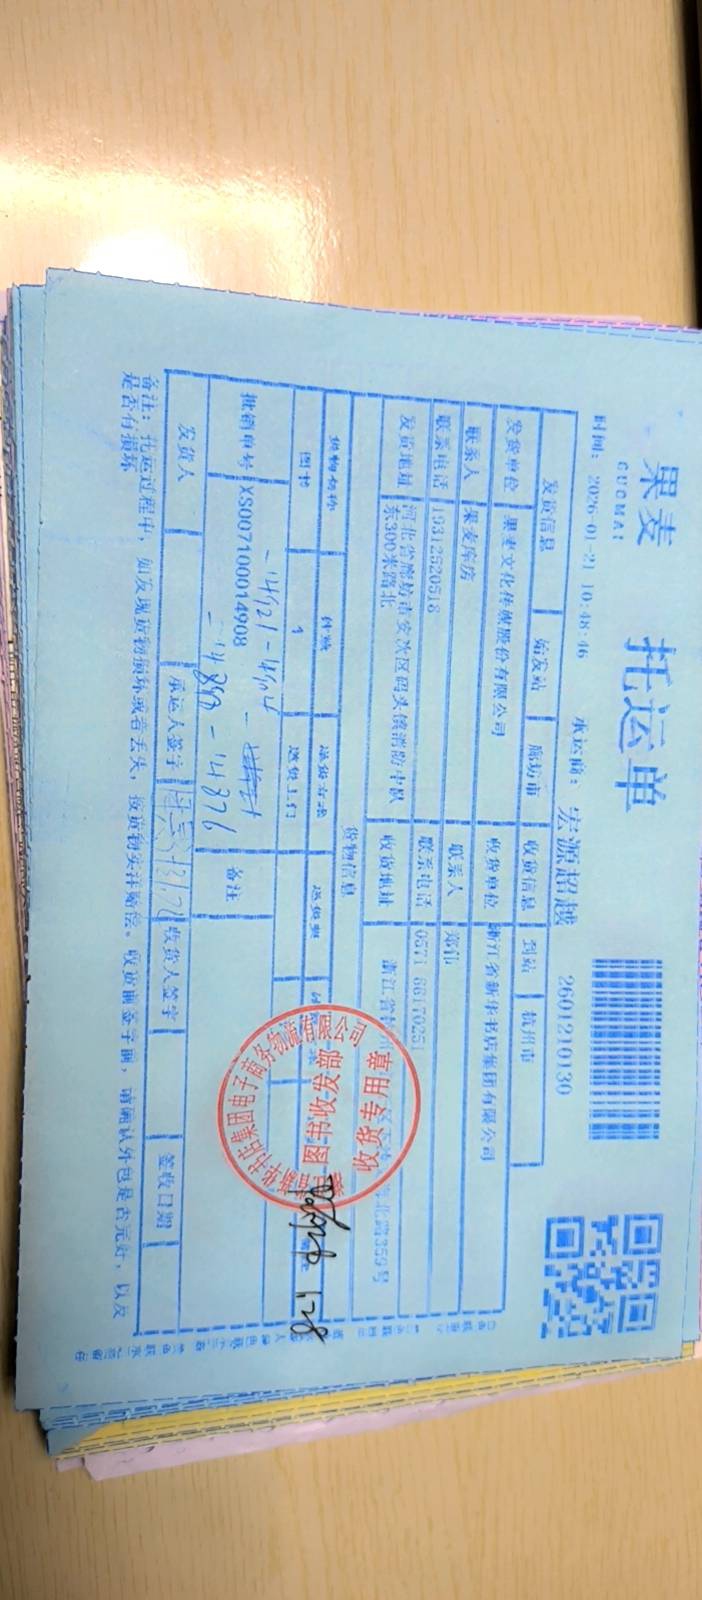 果麦
GUOMAI
托运单
时间: 2026-01-21 10:48:46
承运商: 宏源超越
2601210130
发货信息 始发站 廊坊市 收货信息 到站 杭州市
发货单位 果麦文化传媒股份有限公司 收货单位 浙江省新华书店集团有限公司
联系人 果麦库房 联系人 郑伟
联系电话 19312620518 联系电话 0571 66170251
发货地址 河北省廊坊市安次区码头镇消防中队东300米路北 收货地址 浙江省
359号
货物信息
货物名称 件数 送货方式 送货费
图书 1 送货上门
批销单号 XS0071000014908
备注
-14850 -14876
发货人 承运人签字 收货人签字 签收日期
备注: 托运过程中, 如发现货物损坏或者丢失, 按货物实洋赔偿。收货前签字前, 请确认外包是否完好, 以及
是否有损坏
浙江省新华书店集团电子商务物流有限公司
图书收发部
收货专用章
1.28